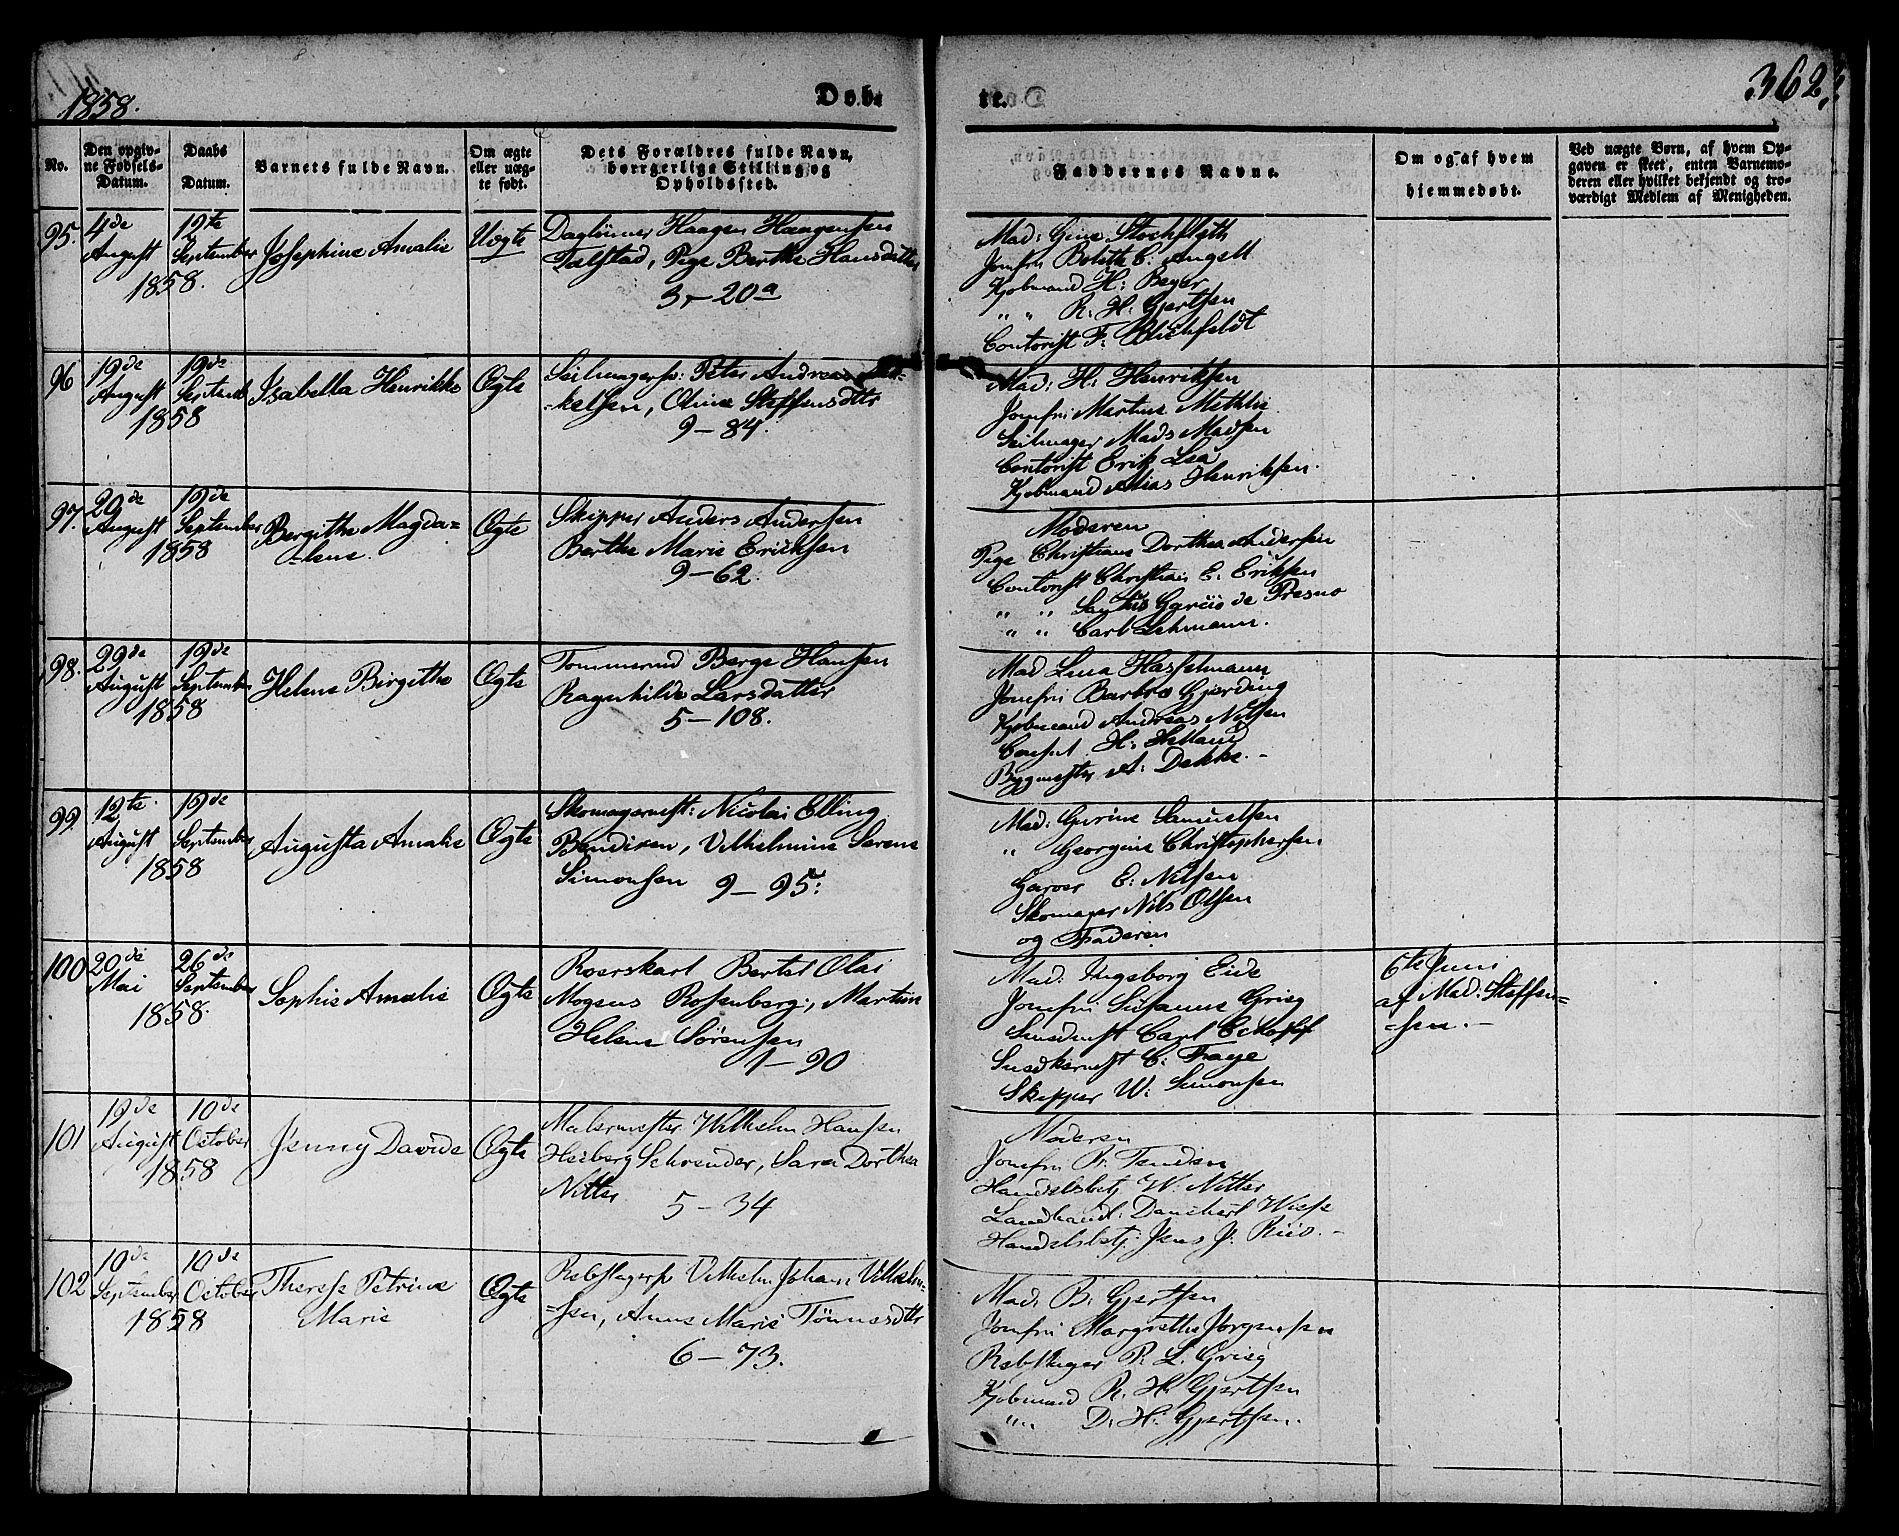 1858.
Døb-
te.
362.
No.
Den opgiv-
ne Fødsels-
Datum.
Daabs
Datum.
Barnets fulde Navn.
Om ægte
eller uæg-
te født.
Dets Forældres fulde Navn,
borgerlige Stilling og
Opholdssted.
Faddernes Navne.
Om og af hvem
hjemmedøbt.
Ved uægte Børn, af hvem Op-
gaven er skeet, enten Barnemo-
deren eller hvilket bekjendt og tro-
værdigt Medlem af Menigheden.
95.
4de
August
19te
September
1858.
Josephine Amalie
Uægte
Daglønner Haagen Haagensen
Talstad, Pige Berthe Hansdatter
3-20a
Mad: Gine Stochfleth
Jomfru Bolette C. Angell
Kjøbmand H: Beyer
" " R. H. Gjertsen
Contorist F: Blichfeldt
96
19de
August
19de
Septemb
1858
Isabella Henrikke
Ægte
Seilmagersv: Peter Andreas
-kelsen, Oline Steffensdttr
9-84.
Mad: H: Henriksen
Jomfru Martine Mathie
Seilmager Mads Madsen
Contorist Erik Lea
Kjøbmand Elias Henriksen.
97.
29de
August
19de
September
1858
Bergithe Magda=
-lene.
Ægte
Skipper Anders Andersen
Berthe Marie Ericksen
9-62.
Moderen
Pige Christiane Dorthea Andersen
Contorist Christian E. Eriksen
" " Santus Garcio de Presno
" " Carl Lehmann.
98.
29de
August
19de
September
1858
Helene Birgitte
Ægte
Tømmermd Berge Hansen
Ragnhilde Larsdatter
5-108.
Mad Lina Hasselmann
Jomfru Barbro Gjerding
Kjøbmand Andreas Nilsen
Consul H: Helland
Bygmester A: Dekke.-
99.
12te
August
19de
September
1858
Augusta Amalie
Ægte
Skomagermst: Nicolai Elling
Bendixen, Vilhelmine Sarene
Simonsen 9-95:
Mad: Gurine Samuelsen
" Georgine Christophersen.
Garver E: Nilsen
Skomager Nils Olsen
og Faderen
100
20de
Mai
26de
September
1858.
Sophie Amalie
Ægte
Roerskarl Bertel Olai
Mogens Rosenberg, Martine
Helene Sørensen
1-90
Mad: Ingeborg Eide
Jomfru Susanne Grieg
Carl Eckhoff
C: Faye
Skipper W: Simonsen
6te Juni
af Mad: Steffen=
-sen.-
101
19de
August
10de
October
1858
Jenny Davide
Ægte
Malermester Wilhelm Hansen
Heiberg Schrøder, Sara Dorthea
Nitter 5-34
Moderen
Jomfru
Handelsbetj W: Nitter
Landhandl: Danchert Wiese
Handelsbetj: Jens J: Riis.-
102
10de
September
10de
October
1858
Therese Petrine
Marie
Ægte
Rebslagersv Vilhelm Johan Vilhelm-
-sen, Anne Marie Tønnesdttr
6-73.
Mad: B: Gjertsen
Jomfru Margrethe Jørgensen
Rebslager P. L. Grieg
Kjøbmand R. H. Gjertsen
" " D: H: Gjertsen.